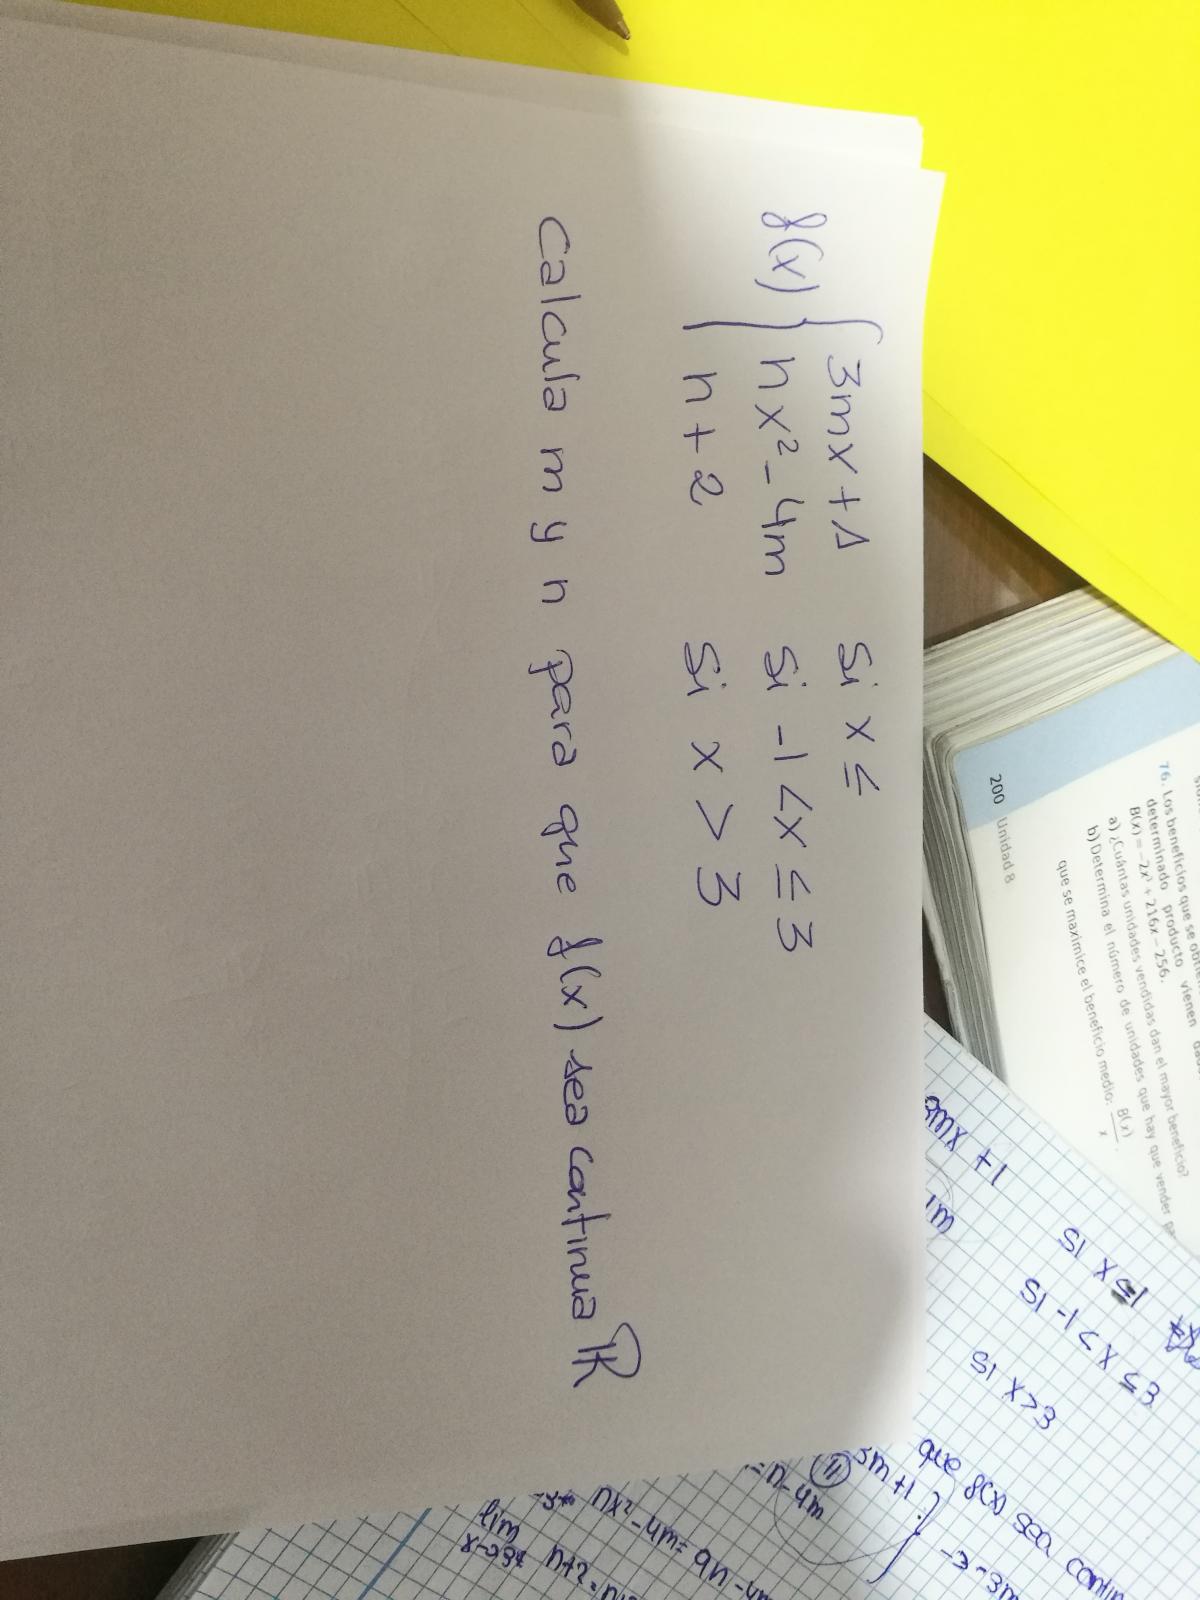 f(x) { 3mx + 1 si x ≤
nx² - 4m si -1 < x ≤ 3
n + 2 si x > 3
Calcula m y n para que f(x) sea continua ℝ
200 Unidad 8
76. Los beneficios que se
determinado producto vienen
B(x) = -2x² + 216x - 256.
a) ¿Cuántas unidades vendidas dan el mayor beneficio?
b) Determina el número de unidades que hay que vender
que se maximice el beneficio medio: B(x)/x
3mx + 1
si x ≤ -1
si -1 < x ≤ 3
si x > 3
que f(x) sea
3m + 1
= n - 4m
nx² - 4m = 9n - 4m
lim n + 2 =